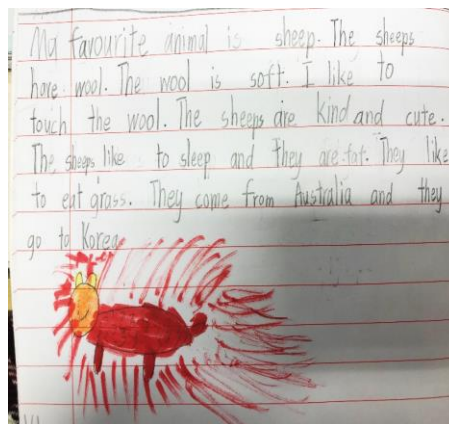 My favourite animal is sheep. The sheeps
have wool. The wool is soft. I like to
touch the wool. The sheeps are kind and cute.
The sheeps like to sleep and they are fat. They like
to eat grass. They come from Australia and they
go to Korea